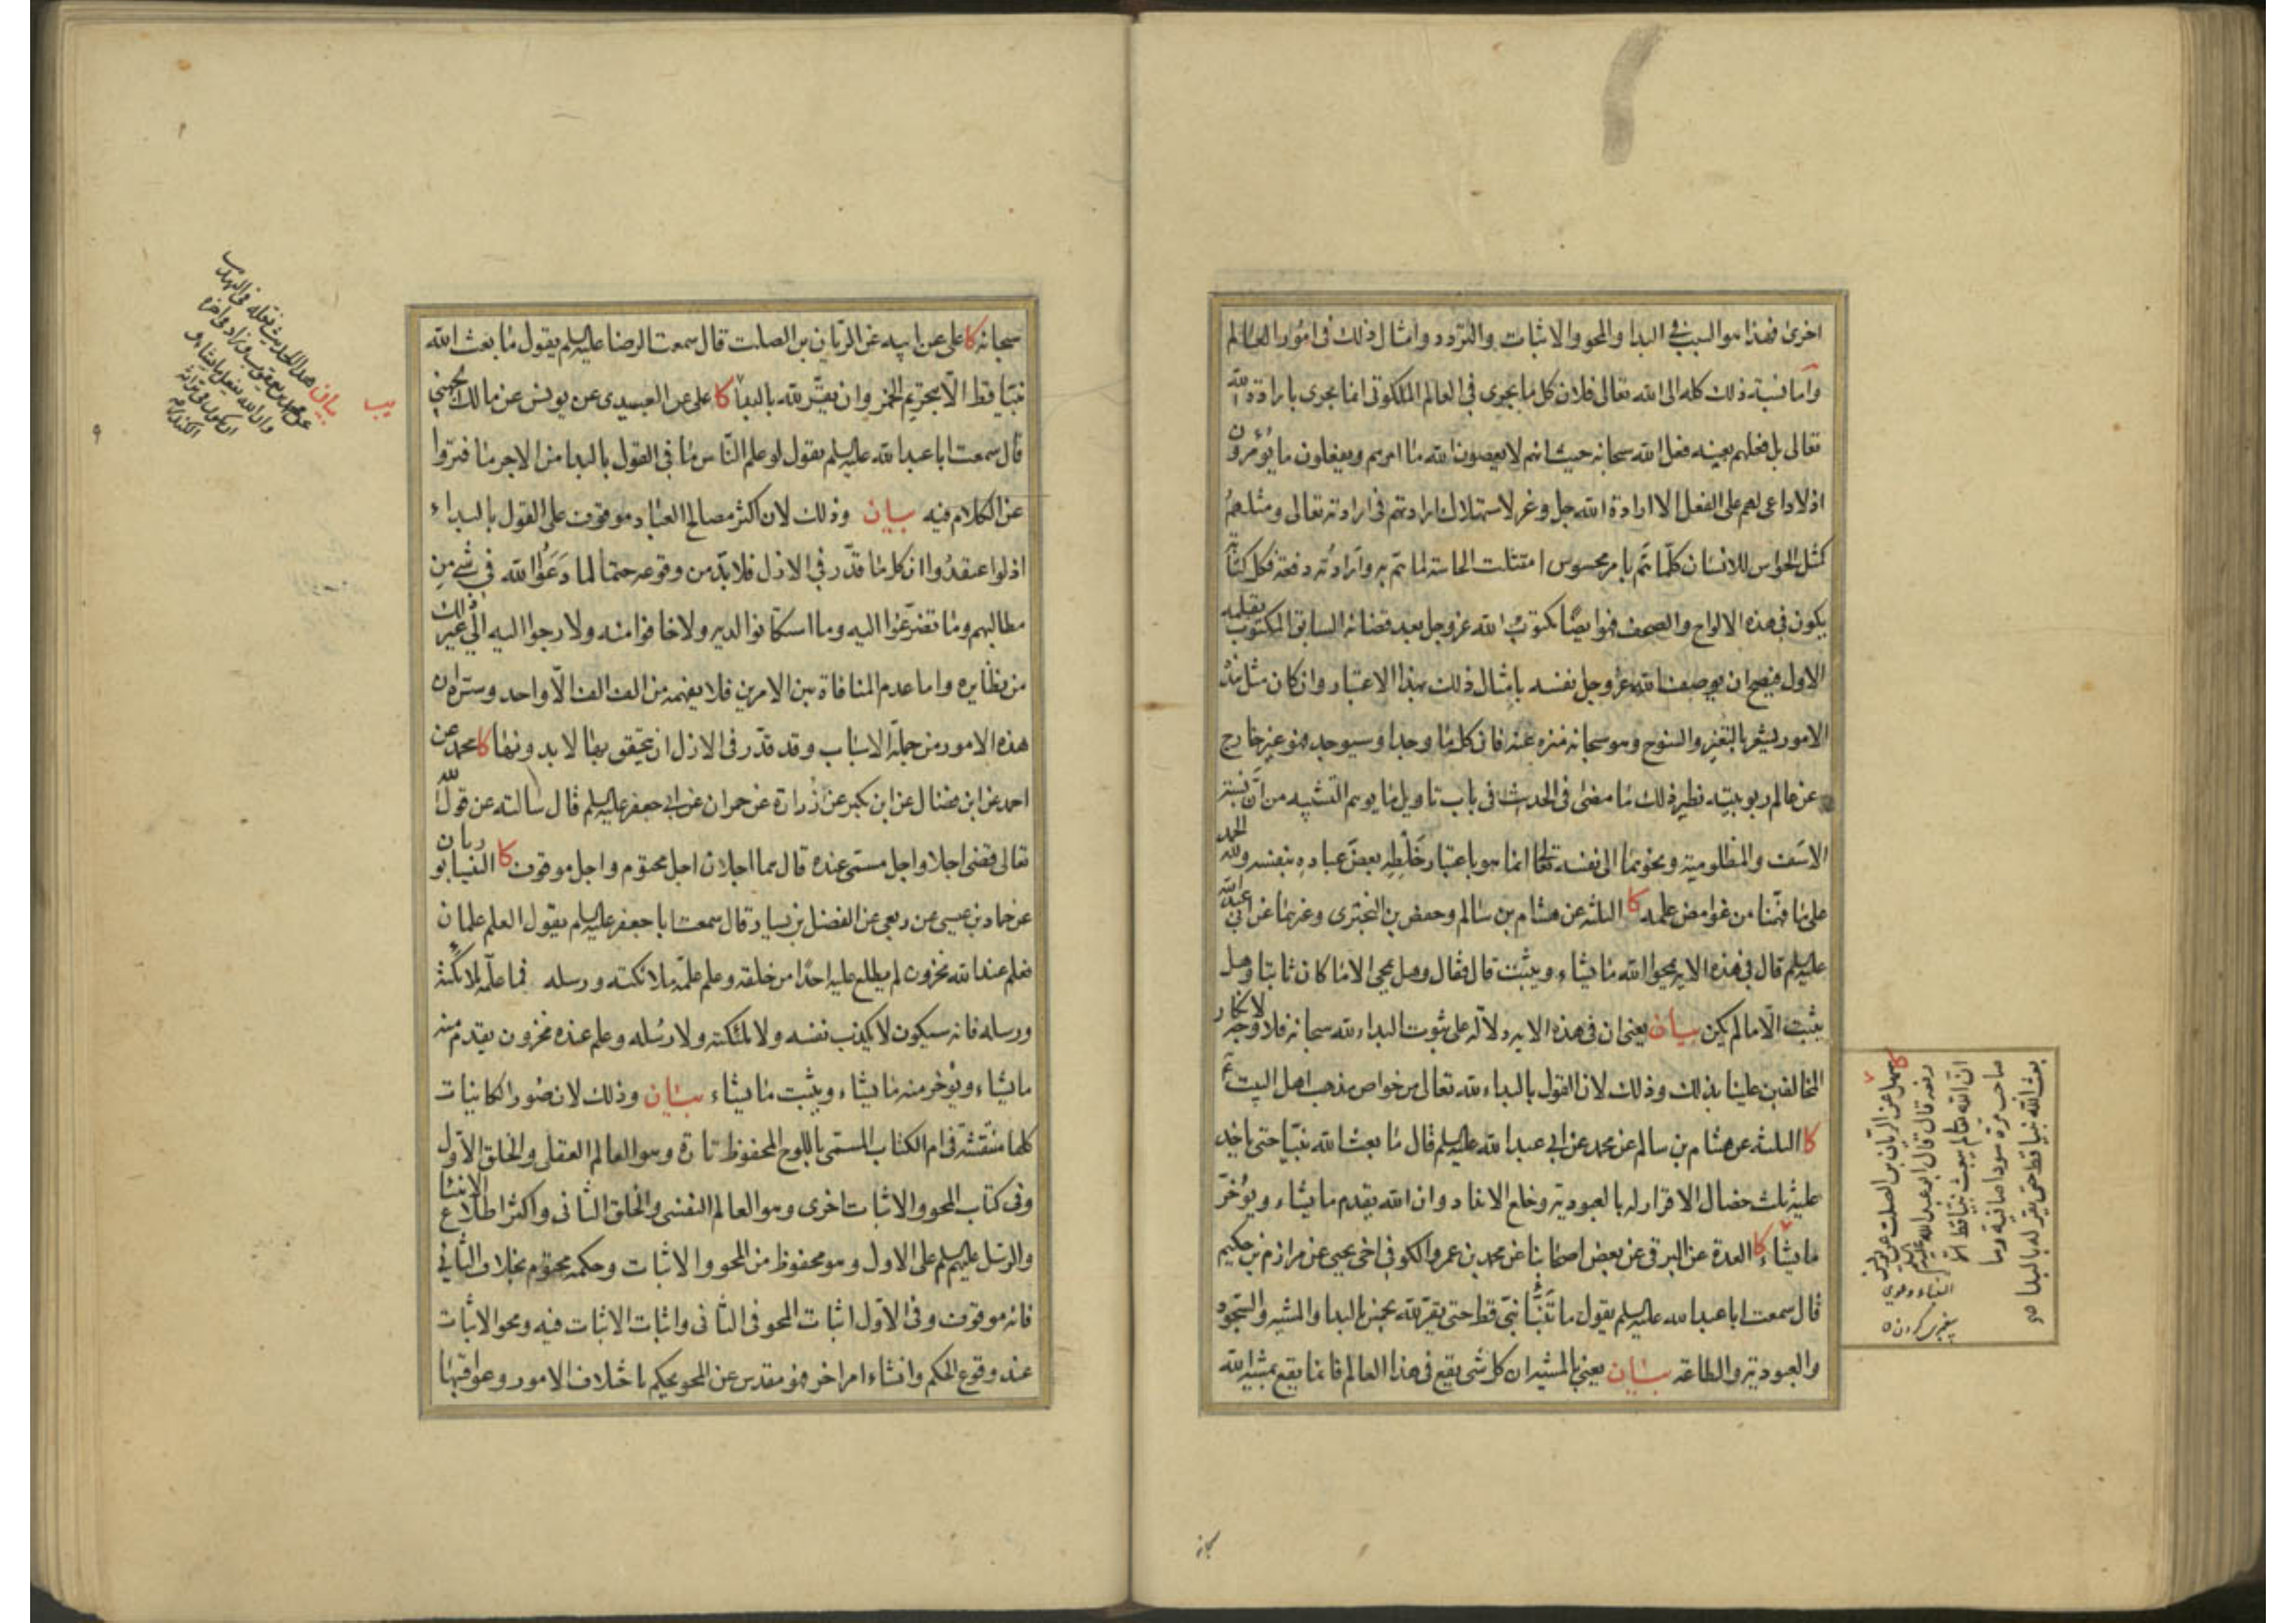 اخرى فهذا هو السبب في البدا والمحو والاثبات والتردد وامثال ذلك في امور العالم
واما نسبة ذلك كله الى الله تعالى فلان كل ما يجرى في العالم الملكوتى انما يجرى بارادة الله
تعالى بل فعلهم بعينه فعل الله سبحانه حيث انهم لا يعصون الله ما امرهم ويفعلون ما يؤمرون
اذ لا داعى لهم على الفعل الا ارادة الله جل وعز لاستهلاك ارادتهم في ارادته تعالى ومثلهم
كمثل الحواس للانسان كلما هم بامر محسوس امتثلت الحاسة لما هم به وارادته دفعة فكل كتابة
يكون في هذه الالواح والصحف فهو ايضا مكتوب الله عز وجل بعد قضائه السابق المكتوب بقلمه
الاول فيصح ان يوصف الله عز وجل نفسه بامثال ذلك بهذا الاعتبار وان كان مثل هذه
الامور يشعر بالتغير والسنوح وهو سبحانه منزه عنه فان كل ما وجد او سيوجد فهو غير خارج
عن عالم ربوبيته نظير ذلك ما مضى في الحدث في باب تاويل ما يوهم التشبيه من ان نسبة
الاسف والمظلومية ونحوهما الى نفسه تعالى انما هو باعتبار خلطه بعض عباده بنفسه ولله الحمد
على ما فهمنا من غوامض علمه كا الثلثة عن هشام بن سالم وحفص بن البخترى وغيرهما عن ابي عبد الله
عليه السلم قال في هذه الاية يمحوا الله ما يشاء ويثبت قال فقال وهل يمحى الا ما كان ثابتا وهل
يثبت الا ما لم يكن بيان يعنى ان في هذه الاية دلالة على ثبوت البداء لله سبحانه فلا وجه لانكار
المخالفين علينا بذلك وذلك لان القول بالبداء لله تعالى من خواص مذهب اهل البيت ع
كا الثلثة عن هشام بن سالم عن محمد عن ابي عبد الله عليه السلم قال ما بعث الله نبيا حتى ياخذ
عليه ثلث خصال الاقرار له بالعبودية وخلع الانداد وان الله يقدم ما يشاء ويؤخر
ما يشاء كا العدة عن البرقى عن بعض اصحابنا عن محمد بن عمرو الكوفي اخى يحيى عن مرازم بن حكيم
قال سمعت ابا عبد الله عليه السلم يقول ما تنبأ نبى قط حتى يقر لله بخمس بالبدا والمشية والسجود
والعبودية والطاعة بيان يعنى بالمشية ان كل شى يقع في هذا العالم فانما يقع بمشية الله
كا سهل عن الريان بن الصلت عن يونس
رفعه قال قال ابو عبد الله عليه السلم
ان الله تعالى لم يبعث نبيا قط الا
صاحب مرة سودا صافية وما
بعث الله نبيا قط حتى يقر له بالبدا
پيغمبرى كردن
سبحانه
سبحانه كا على عن ابيه عن الريان بن الصلت قال سمعت الرضا عليه السلم يقول ما بعث الله
نبيا قط الا بتحريم الخمر وان يقر لله بالبدا كا على عن العبيدى عن يونس عن مالك الجهنى
قال سمعت ابا عبد الله عليه السلم يقول لو علم الناس ما في القول بالبدا من الاجر ما فتروا
عن الكلام فيه بيان وذلك لان اكثر مصالح العباد موقوف على القول بالبداء
اذ لو اعتقدوا ان كل ما قدر في الازل فلا بد من وقوعه حتما لما دعوا الله في شى من
مطالبهم وما تضرعوا اليه وما استكانوا لديه ولا خافوا منه ولا رجوا اليه الى غير ذلك
من نظايره واما عدم المنافاة بين الامرين فلا يفهمه من الف الف الا واحد وستره ان
هذه الامور من جملة الاسباب وقد قدر في الازل ان يتحقق بها لا بدونها كا محمد عن
احمد عن ابن فضال عن ابن بكير عن زرارة عن حمران عن ابي جعفر عليه السلم قال سالته عن قول الله
تعالى قضى اجلا واجل مسمى عنده قال هما اجلان اجل محتوم واجل موقوف كا النيسابوريان
عن حماد بن عيسى عن ربعى عن الفضيل بن يسار قال سمعت ابا جعفر عليه السلم يقول العلم علمان
فعلم عند الله مخزون لم يطلع عليه احدا من خلقه وعلم علمه ملائكته ورسله فما علمه ملائكته
ورسله فانه سيكون لا يكذب نفسه ولا ملئكته ولا رسله وعلم عنده مخزون يقدم منه
ما يشاء ويؤخر منه ما يشاء ويثبت ما يشاء بيان وذلك لان صور الكاينات
كلها منتقشة في ام الكتاب المسمى باللوح المحفوظ تارة وهو العالم العقلى والخلق الاول
وفى كتاب المحو والاثبات اخرى وهو العالم النفسى والخلق الثانى واكثر اطلاع الانبيا
والرسل عليهم السلم على الاول وهو محفوظ من المحو والاثبات وحكمه محتوم بخلاف الثانى
فانه موقوف وفى الاول اثبات المحو في الثانى واثبات الاثبات فيه ومحو الاثبات
عند وقوع الحكم وانشاء امر اخر فهو مقدس عن المحو بحكم باختلاف الامور وعواقبها
يب
بيان هذا الحديث نقله في التهذيب
عن محمد بن يعقوب وزاد في اخره
وان الله يفعل ما يشاء و
ان يكون في تراثه
الكندر